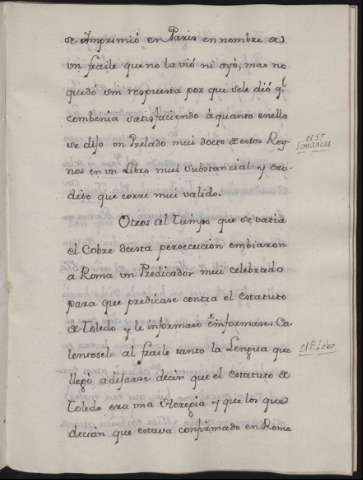 se Imprimió en Paris en nombre de
un fraile que no la vió ni oyó, mas no
quedó sin respuesta por que se le dió ql.
combenia satisfaciendo á quanto en ella
se dijo un Prelado mui docto de estos Rey-
nos en un Libro mui substancial y eru-
dito que corre mui valido.
Otros al tiempo que se batia
el Cobre de esta persecución embiaron
a Roma un Predicador mui celebrado
para que predicase contra el estatuto
de Toledo y le informaró informase. Ca-
lentosele al fraile tanto la Lengua que
llegó a dejarse decir que el estatuto de
Toledo era una Heregia y que los que
decian que estava confirmado en Roma
el Sr.
Simancas